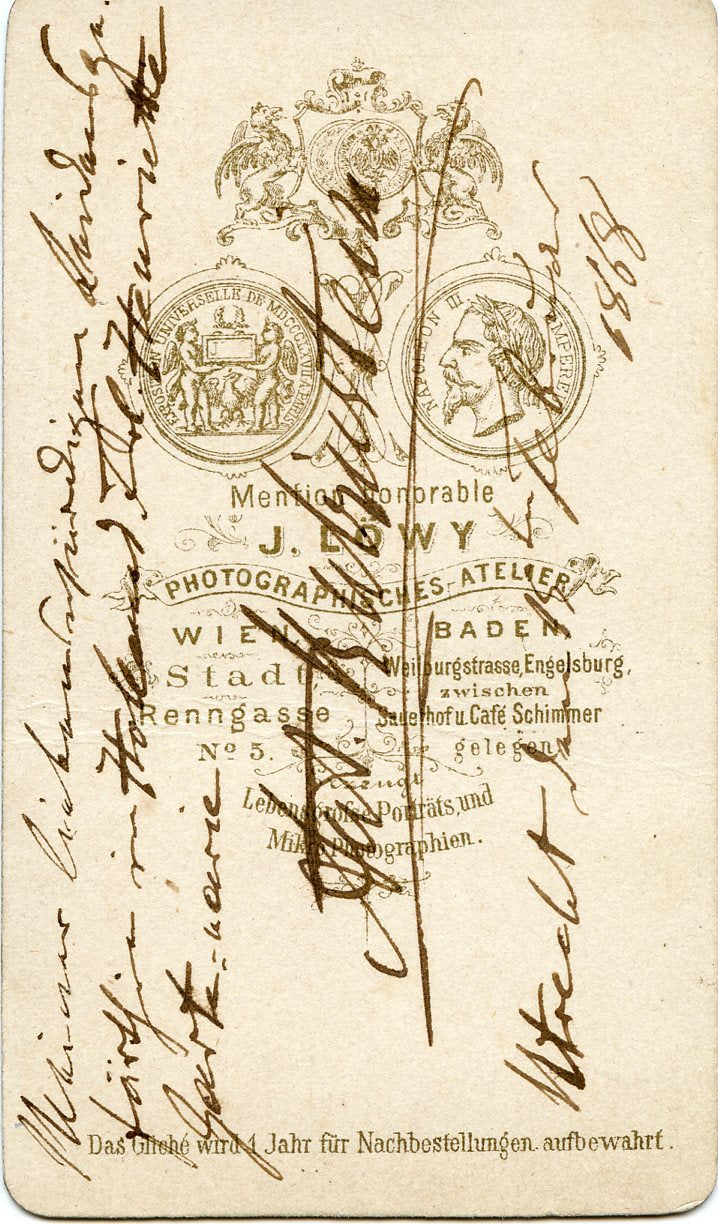 EXPOSITION UNIVERSELLE DE MDCCCLXVII A PARIS
NAPOLEON III EMPEREUR
Mention honorable
J. LÖWY
PHOTOGRAPHISCHES-ATELIER
WIEN,
Stadt,
Renngasse
No 5.
BADEN,
Weilburgstrasse, Engelsburg,
zwischen
Sauerhof u. Café Schimmer
gelegen.
erzeugt
Lebensgröfse Porträts, und
Mikro Photographien.
Das Cliché wird 1 Jahr für Nachbestellungen aufbewahrt.
Meiner liebenswürdigen
in Holland Henriette
Utrecht
1868